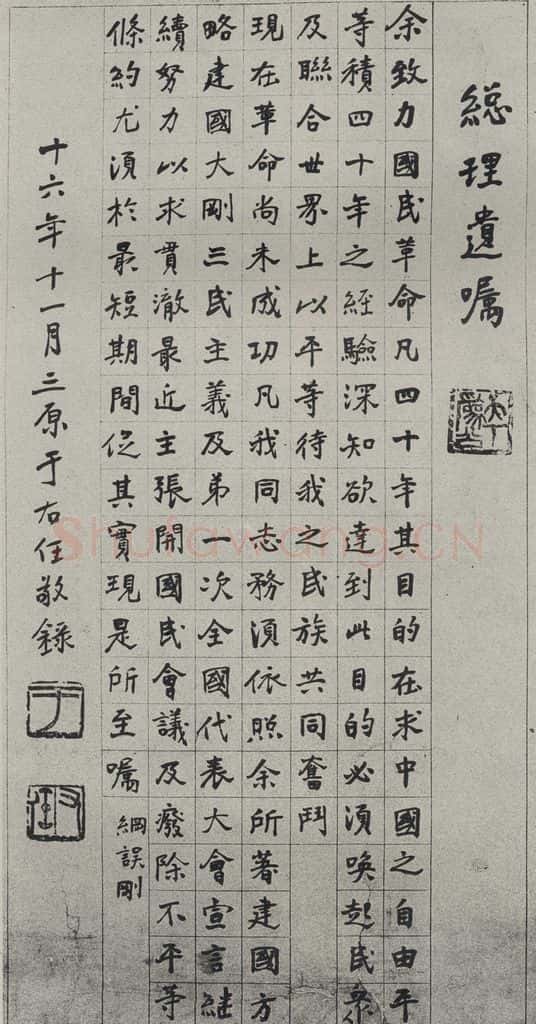 緫理遺嘱
余致力國民革命凡四十年其目的在求中國之自由平
等積四十年之經驗深知欲達到此目的必須喚起民衆
及聯合世界上以平等待我之民族共同奮鬥
現在革命尚未成功凡我同志務須依照余所著建國方
略建國大剛三民主義及弟一次全國代表大會宣言繼
續努力以求貫澈最近主張開國民會議及廢除不平等
條約尤須於最短期間促其實現是所至嘱
綱誤剛
十六年十一月三原于右任敬錄
Shufawang.CN